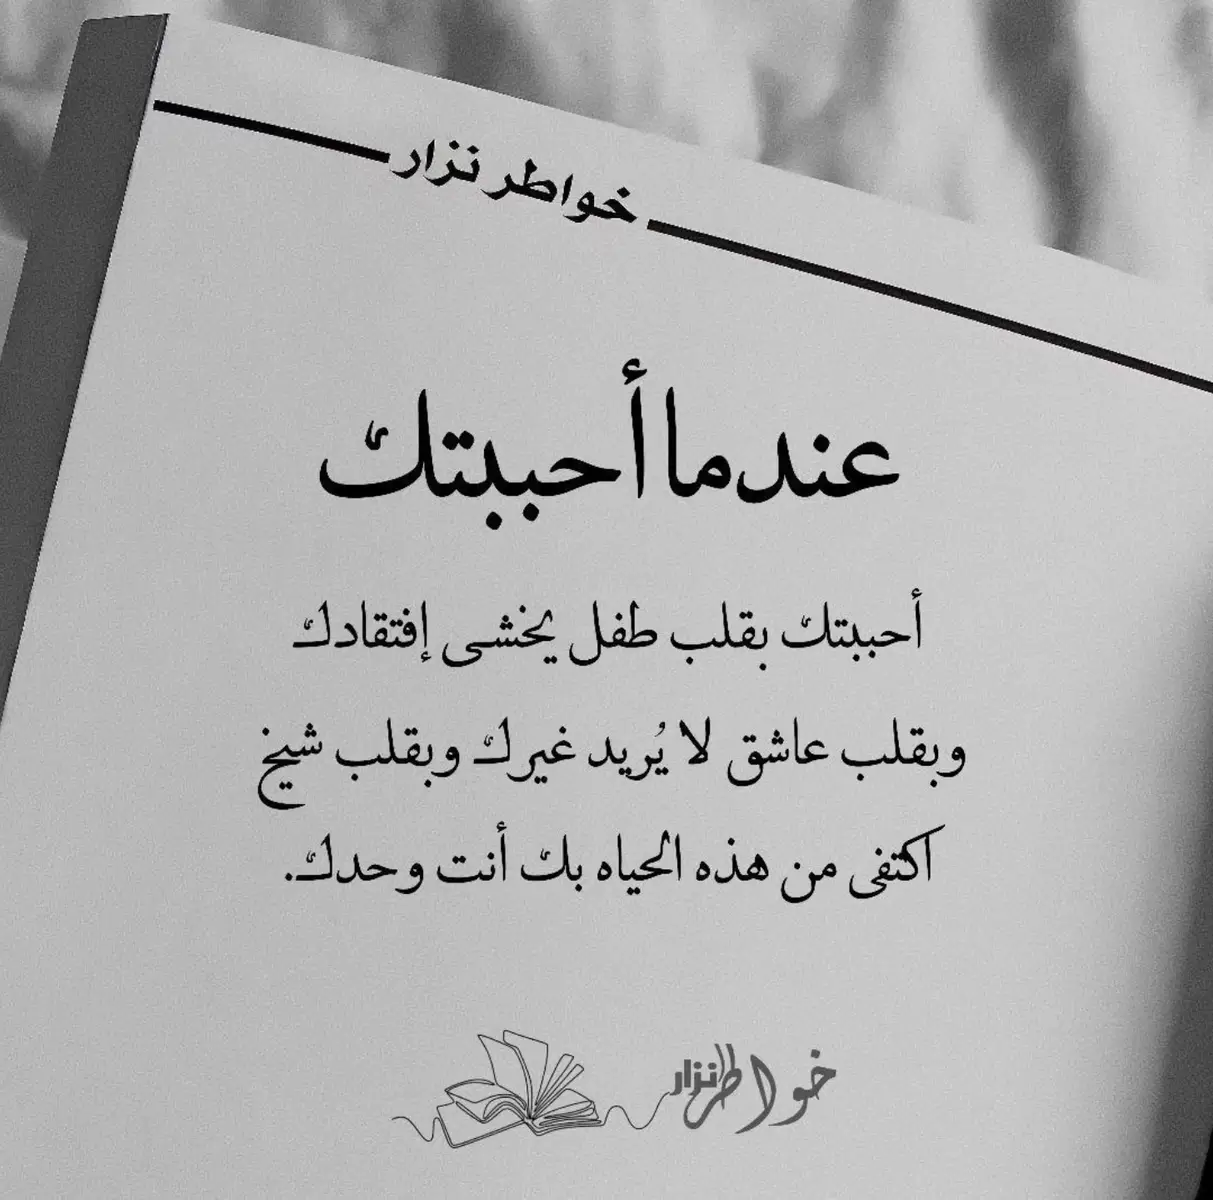 خواطر نزار
عندما أحببتك
أحببتك بقلب طفل يخشى إفتقادك
وبقلب عاشق لا يُريد غيرك وبقلب شيخ
اكتفى من هذه الحياه بك أنت وحدك.
خواطر نزار